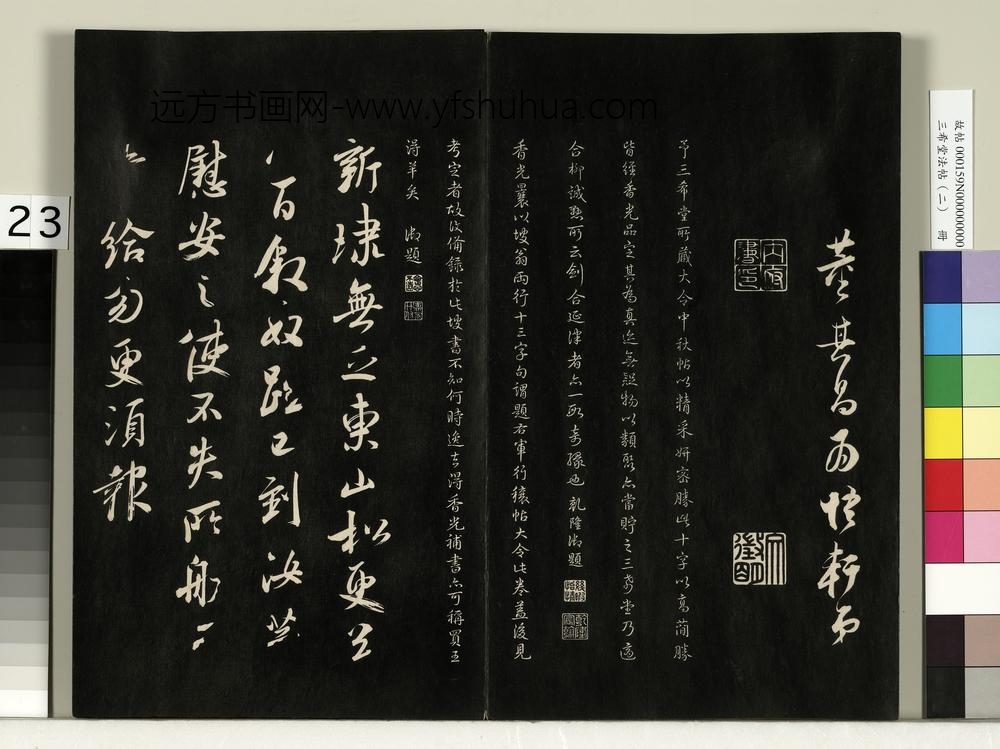 远方书画网-www.yfshuhua.com
故帖 000159N000000000
三希堂法帖（二） 冊
23
董其昌
予三希堂所藏大令中秋帖以精采妍密勝此十字以高簡勝
皆經香光品定其為真迹無疑物以類聚亦當貯之三希堂乃適
合柳誠懸所云劍合延津者亦一段奇緣也 乾隆御題
香光曩以坡翁兩行十三字句謂題右軍行穰帖大令此卷蓋後見
考定者故汝備錄於此坡書不知何時逸去得香光補書亦可稱買王
得羊矣 御題
新埭無乏東山松更送
八百敘奴跽已到汝等
慰安之使不失所舟
給勿更須報